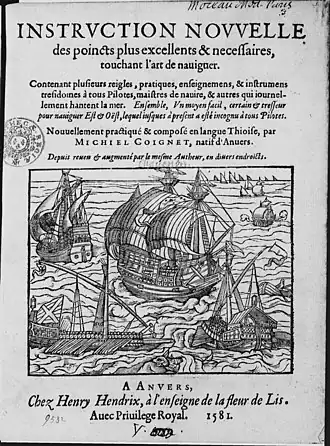 INSTRVCTION NOVVELLE
des poincts plus excellents & necessaires,
touchant l'art de nauiguer.
Contenant plusieurs reigles, pratiques, enseignemens, & instrumens
tresidoines à tous Pilotes, maistres de nauire, & autres qui iournel-
lement hantent la mer. Ensemble, Vn moyen facil, certain & tresseur
pour nauiguer Est & Oëst, lequel iusques à present a esté incognu à tous Pilotes.
Nouuellement practiqué & composé en langue Thioise, par
MICHIEL COIGNET, natif d'Anuers.
Depuis reueu & augmenté par le mesme Autheur, en diuers endroicts.
A ANVERS,
Chez Henry Hendrix, à l'enseigne de la fleur de Lis.
Auec Priuilege Royal. 1581.
V.